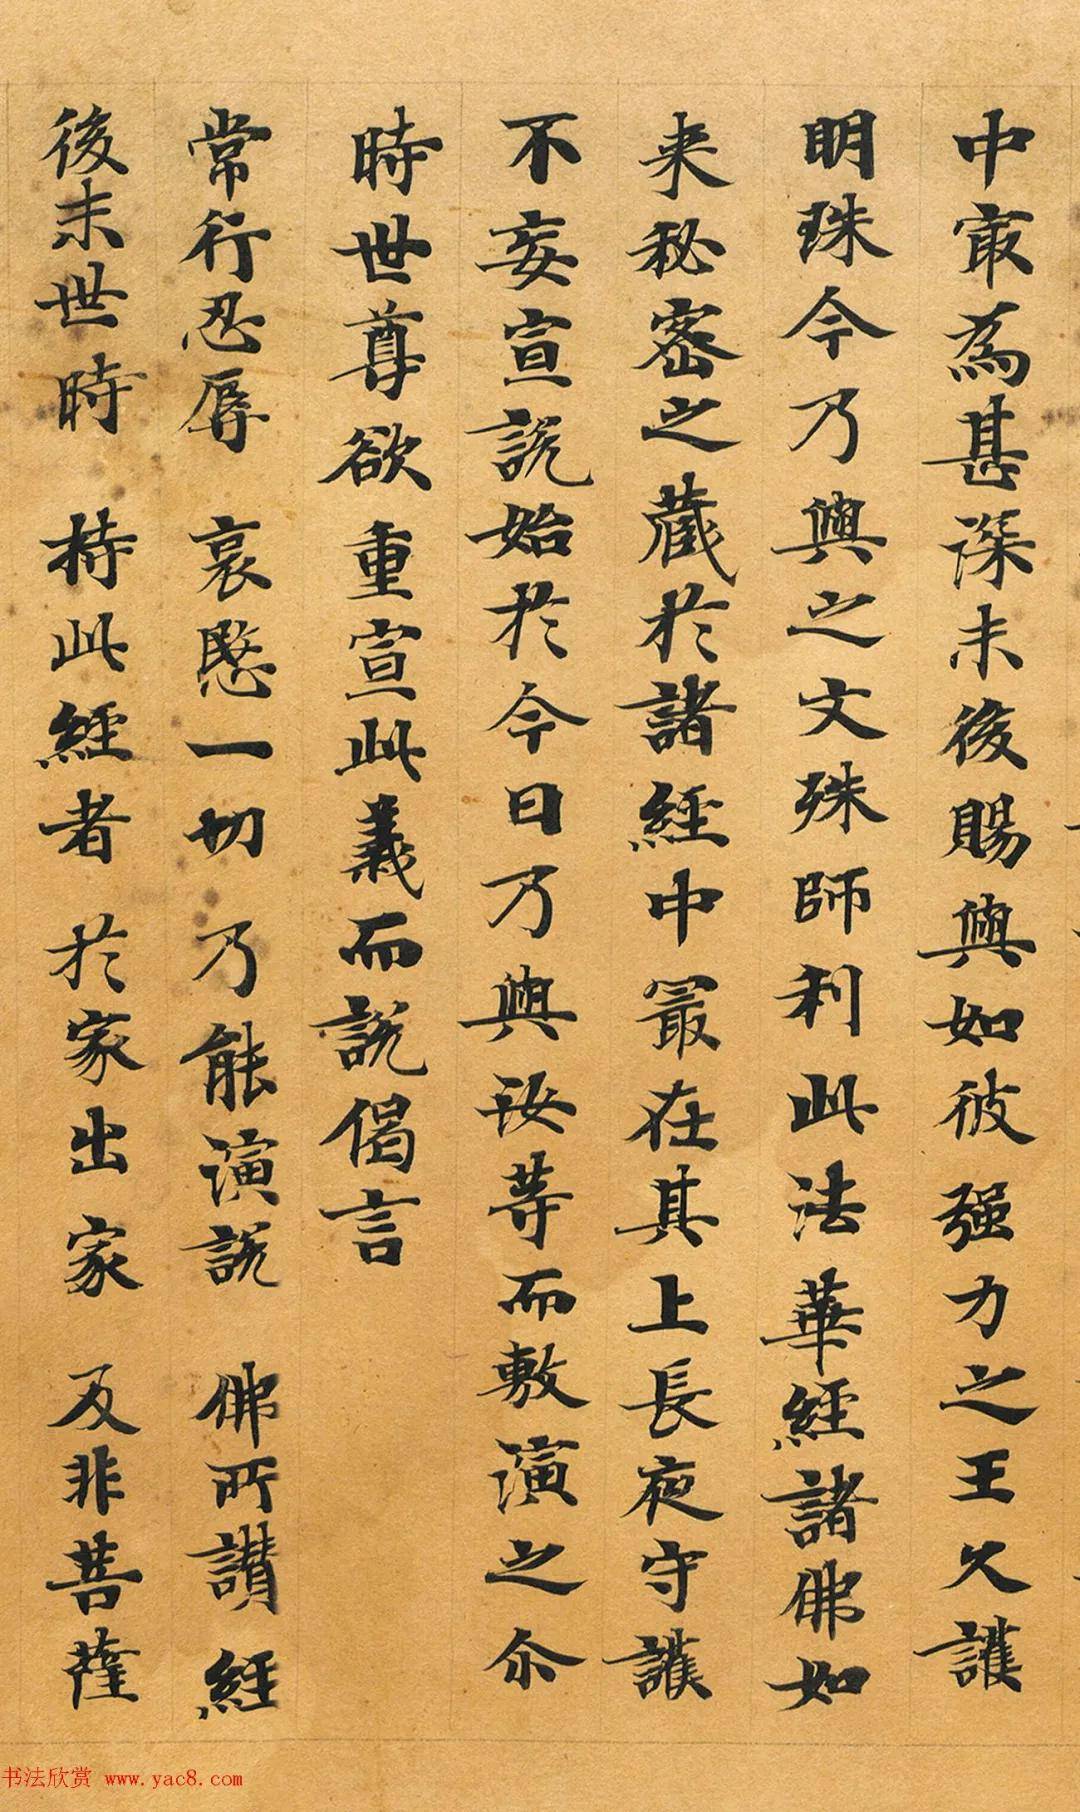 中㝡為甚深末後賜與如彼强力之王久護
明珠今乃與之文殊師利此法華經諸佛如
来秘密之藏於諸經中最在其上長夜守護
不妄宣說始於今日乃與汝等而敷演之尒
時世尊欲重宣此義而說偈言
常行忍辱 哀愍一切 乃能演說 佛所讃經
後末世時 持此經者 於家出家 及非菩薩
书法欣赏 www.yac8.com